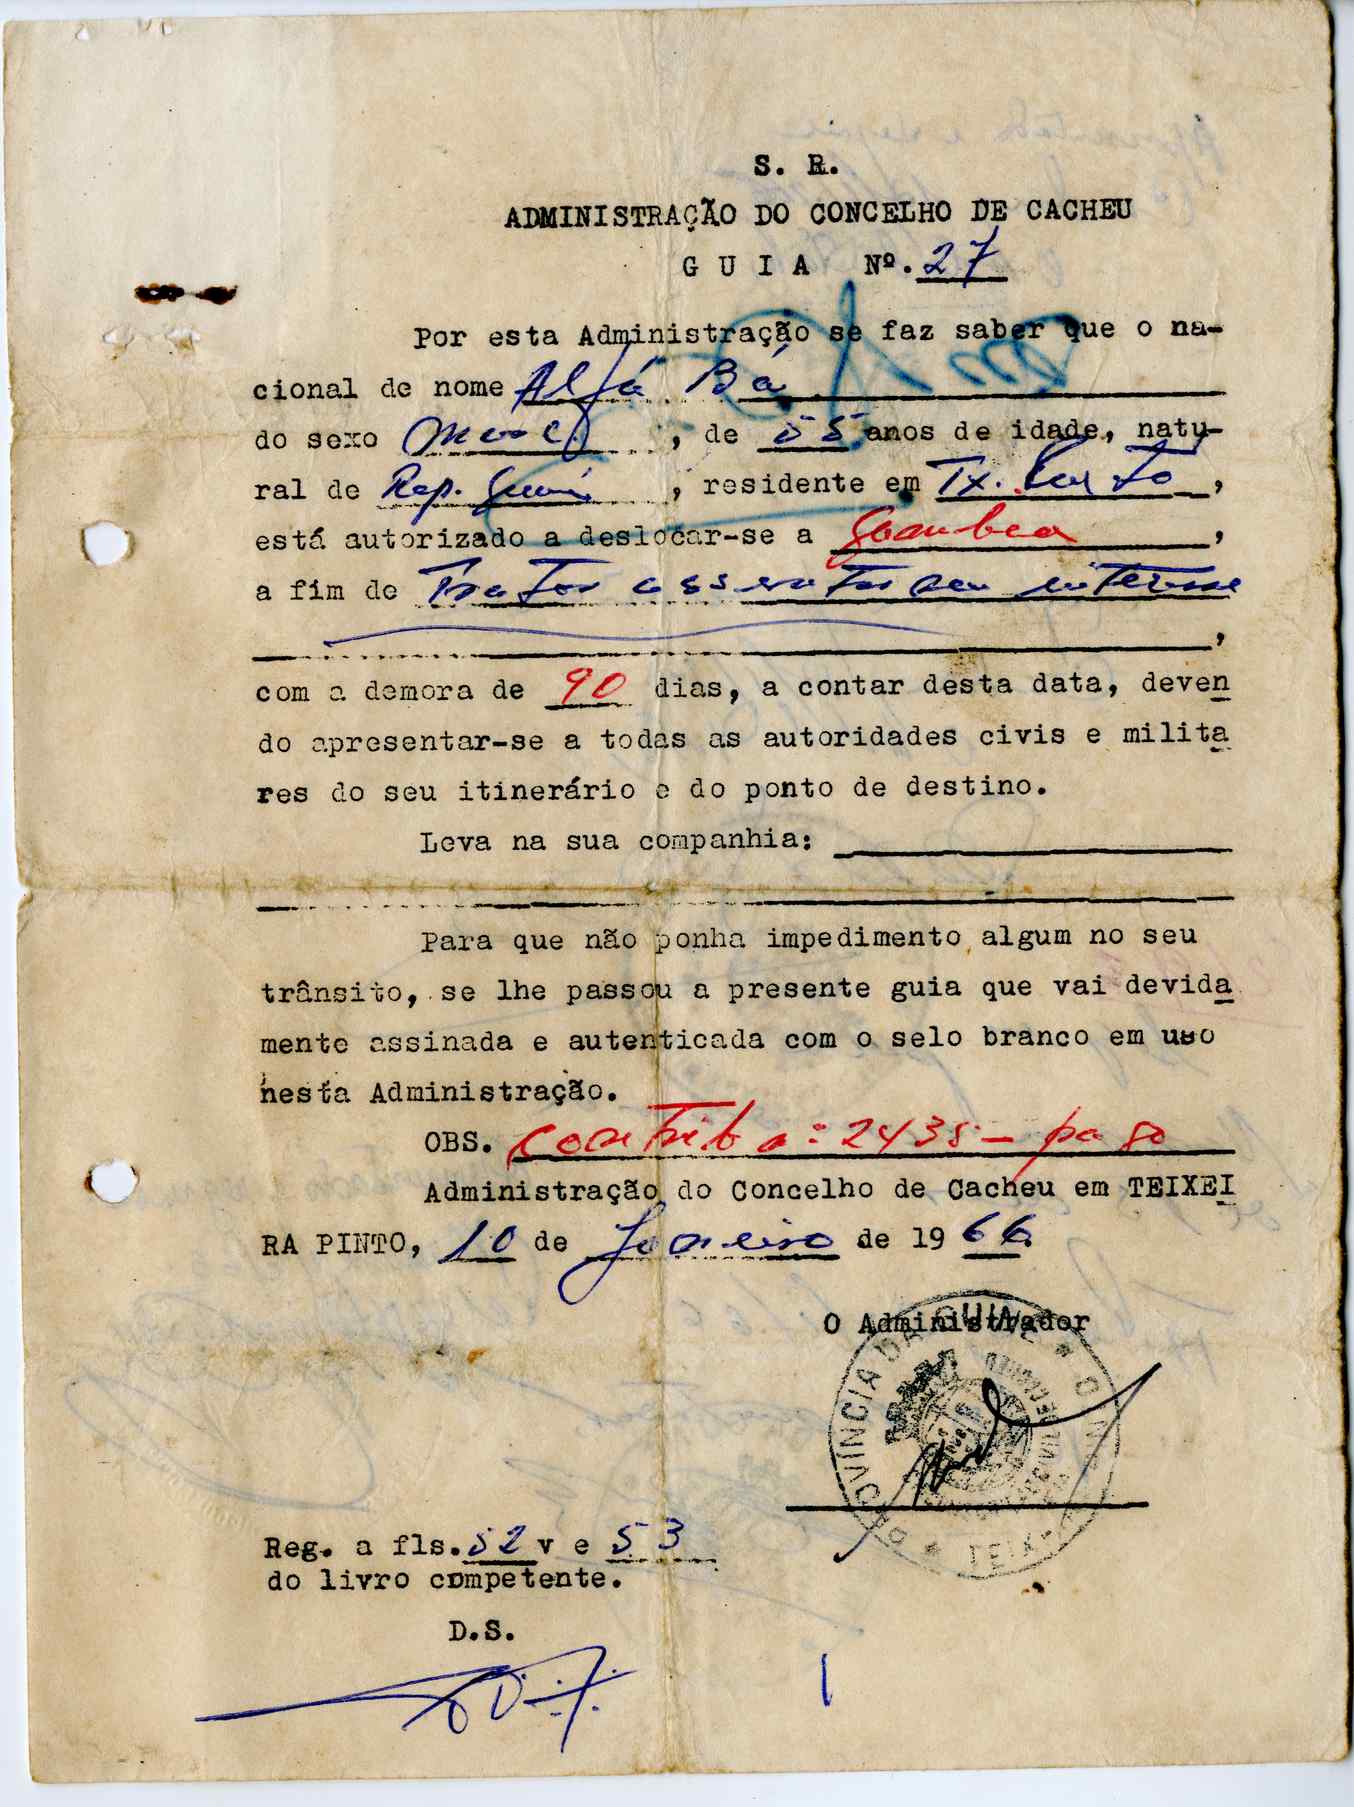 S. R.
ADMINISTRAÇÃO DO CONCELHO DE CACHEU
G U I A Nº. 27
Por esta Administração se faz saber que o na-
cional de nome Alfá Bá
do sexo masc, de 55 anos de idade, natu-
ral de Rep. Guiné, residente em Tx. Pinto,
está autorizado a deslocar-se a Gambea,
a fim de Tratar assuntos seu interesse
,
com a demora de 90 dias, a contar desta data, deven
do apresentar-se a todas as autoridades civis e milita
res do seu itinerário e do ponto de destino.
Leva na sua companhia:
Para que não ponha impedimento algum no seu
trânsito, se lhe passou a presente guia que vai devida
mente assinada e autenticada com o selo branco em uso
nesta Administração.
OBS. Contrib a: 2435 - pago
Administração do Concelho de Cacheu em TEIXEI
RA PINTO, 10 de Janeiro de 1966
O Administrador
PROVÍNCIA DA GUINÉ
Reg. a fls. 52 v e 53
do livro competente.
D.S.